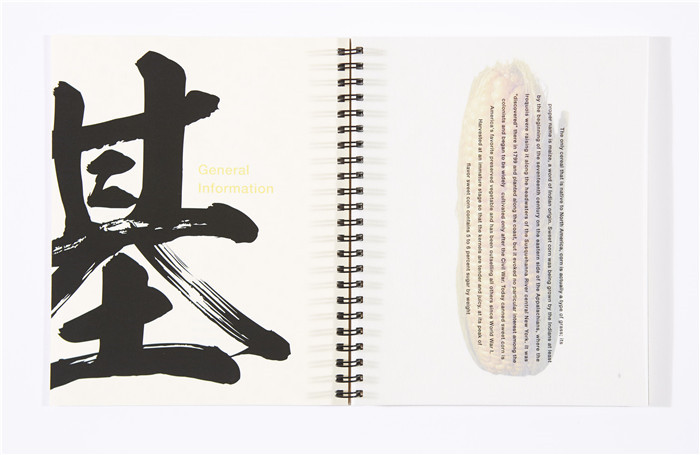 基
General
Information
The only cereal that is native to North America, corn is actually a type of grass; its
proper name is maize, a word of Indian origin. Sweet corn was being grown by the Indians at least
by the beginning of the seventeenth century on the eastern side of the Appalachians, where the
Iroquois were raising it along the headwaters of the Susquehanna River central New York. It was
"discovered" there in 1799 and planted along the coast, but it evoked no particular interest among the
colonists and began to be widely cultivated only after the Civil War. Today canned sweet corn is
America's favorite preserved vegetable and has been outselling all others since World War I.
Harvested at an immature stage so that the kernels are tender and juicy, at its peak of
flavor sweet corn contains 5 to 6 percent sugar by weight